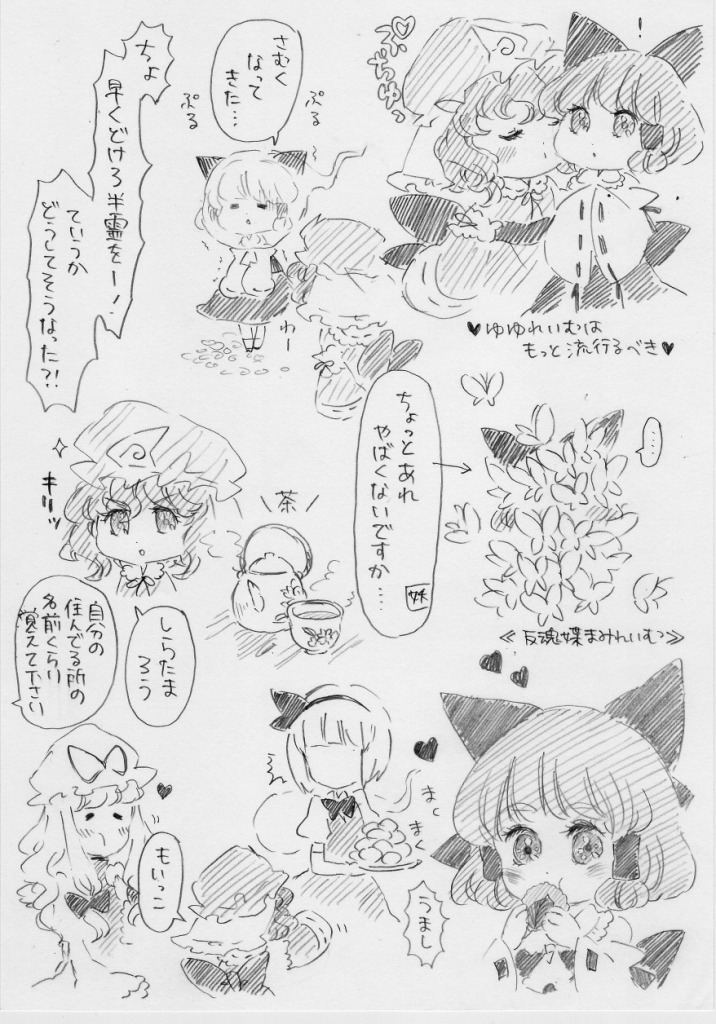 ぶちゅっ
!
♥ゆゆれいむは
もっと流行るべき♥
さむく
なって
きた…
ぷる
ぷる
わー
ちょ
早くどけろ半霊をー!
ていうか
どうしてそうなった?!
ちょっとあれ
やばくないですか…
妖
……
≪反魂蝶まみれいむ≫
キリッ
茶
しらたま
ろう
自分の
住んでる所の
名前くらい
覚えて下さい
もいっこ
まく
まく
うまし